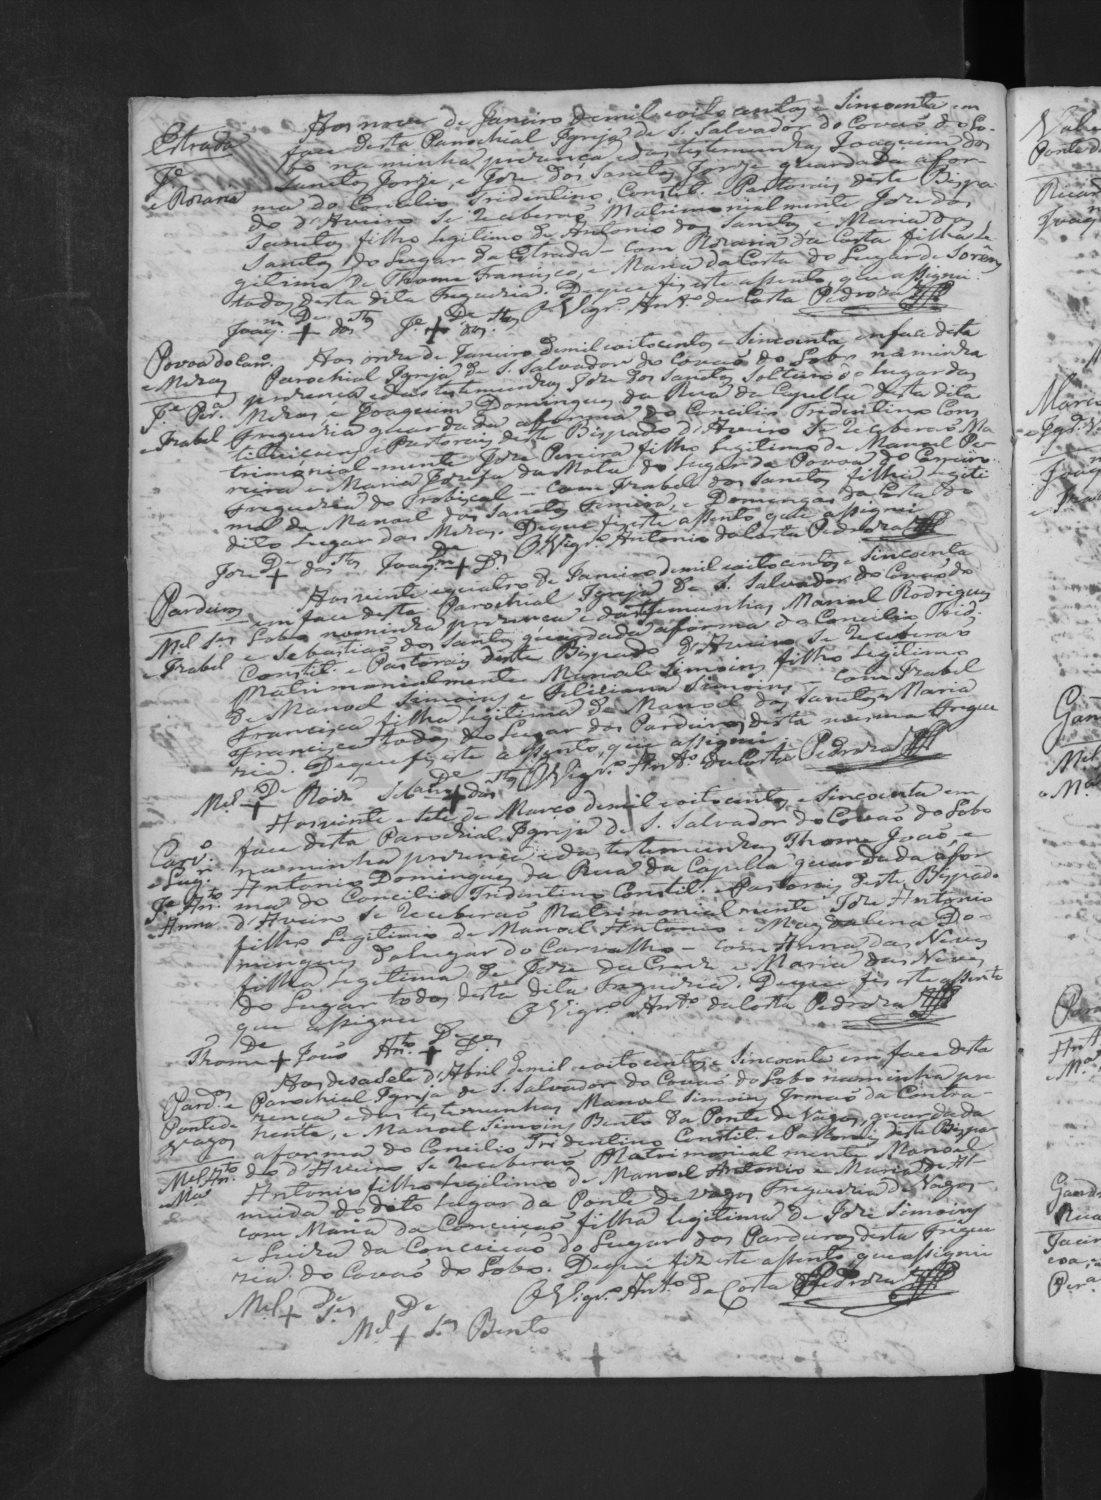 Estrada
Jᵉ
e Rozaria
Aos nove de Janeiro de mil e oito centos e sincoenta em
face desta Parochial Igreja de S. Salvador do Covaõ do Lo-
bo na minha prezença e das testemunhas Joaquim dos
Santos Jorge, e Joze dos Santos Jorge guardada a for
ma do Concilio Tridentino, Constit. e Pastorais deste Bispa
do d'Aveiro se receberaõ Matrimonialmente Joze dos
Santos filho legitimo de Antonio dos Santos e Maria dos
Santos do Lugar da Estrada - com Rozaria da Costa filha le
gitima de Thome Francisco, e Maria da Costa do Lugar de
todos desta dita Freguezia. De que fiz este assento que assignei
O Vigrº. Antº da Costa Pedroza
Joaqᵐ De + dos Stᵒˢ Jᵉ De + dos Stᵒˢ
Povoa do Carº
e Mezas
Jᵉ Perª
e Izabel
Aos onze de Janeiro de mil e oito centos e sincoenta, em face desta
Parochial Igreja de S. Salvador do Covaõ do Lobo na minha
prezença e das testemunhas Joze dos Santos Solteiro do lugar das
Mezas e Joaquim Domingues da Rua da Capella desta dita
Freguezia guardada a forma do Concilio Tridentino Cons
tituiçoens e Pastorais deste Bispado d'Aveiro se receberaõ Ma
trimonial-mente Joze Pereira filho legitimo de Manoel Pe-
reira e Maria Jozefa da Mota do Lugar da Povoa do
Freguezia do - com Izabel dos Santos filha legiti
ma de Manoel dos Santos e Domingas da Costa do
dito Lugar das Mezas. De que fiz este assento que assignei
O Vigrº. Antonio da Costa Pedroza
Joze De + dos Stᵒˢ Joaqᵐ De + Dˢ
Pardeiros
Mᵉˡ Sᵉˢ
e Izabel
Aos vinte e quatro de Janeiro de mil e oito centos e sincoenta
em face desta Parochial Igreja de S. Salvador do Covaõ do
Lobo na minha prezença e das testemunhas Manoel Rodrigues
e Sebastiaõ dos Santos guardada a forma do Concilio Trid.
Constit. e Pastorais deste Bispado d'Aveiro se receberaõ
Matrimonialmente Manoel Simoins filho legitimo
de Manoel Simoins e Feliciana Simoins - com Izabel
Francisca filha legitima de Manoel dos Santos e Maria
Francisca todos do Lugar dos Pardeiros desta mesma Fregue
zia. De que fiz este assento, que assignei
O Vigrº. Antº da Costa Pedroza
Mᵉˡ De + Roiz Sebamᵒ De + dos Stᵒˢ
Carvº.
e Lugʳ
Jᵉ Antº
e Anna
Aos vinte e sete de Março de mil e oito centos, e sincoenta em
face desta Parochial Igreja de S. Salvador do Covaõ do Lobo
na minha prezença e das testemunhas Thome Joaõ e
Antonio Domingues da Rua da Capella guardada a for
ma do Concilio Tridentino Constit. e Pastorais deste Bispado
d'Aveiro se receberaõ Matrimonialmente Joze Antonio
filho legitimo de Manoel Antonio e Magdalena Do-
mingues do lugar do Carvalho - com Anna das Neves
filha legitima de Joze da Cruz e Maria das Neves
do Lugar todos desta dita Freguezia. De que fiz este assento
que assignei O Vigrº. Antº. da Costa Pedroza
Thome De + Joaõ Antº De + Dᵉˢ
Pardᵒˢ e
Ponte de
Vagos
Mᵉˡ Antº
e Mª
Aos desasete d'Abril de mil e oito centos e sincoenta em face desta
Parochial Igreja de S. Salvador do Covaõ do Lobo na minha pre
zença e das testemunhas Manoel Simoins Irmaõ da Contra-
hente, e Manoel Simoins Bento da Ponte de Vagos, guardada
a forma do Concilio Tridentino Constit. e Pastorais deste Bispa
do d'Aveiro se receberaõ Matrimonialmente Manoel
Antonio filho legitimo de Manoel Antonio e Maria de Al-
meida do dito Lugar da Ponte de Vagos Freguezia de Vagos -
com Maria da Conceiçaõ filha legitima de Joze Simoins
e Luiza da Conceiçaõ do Lugar dos Pardeiros desta Fregue
zia do Covaõ do Lobo. De que fiz este assento que assignei
O Vigrº. Antº da Costa Pedroza
Mᵉˡ De + Sᵉˢ
Mᵉˡ De + Sᵉˢ Bento